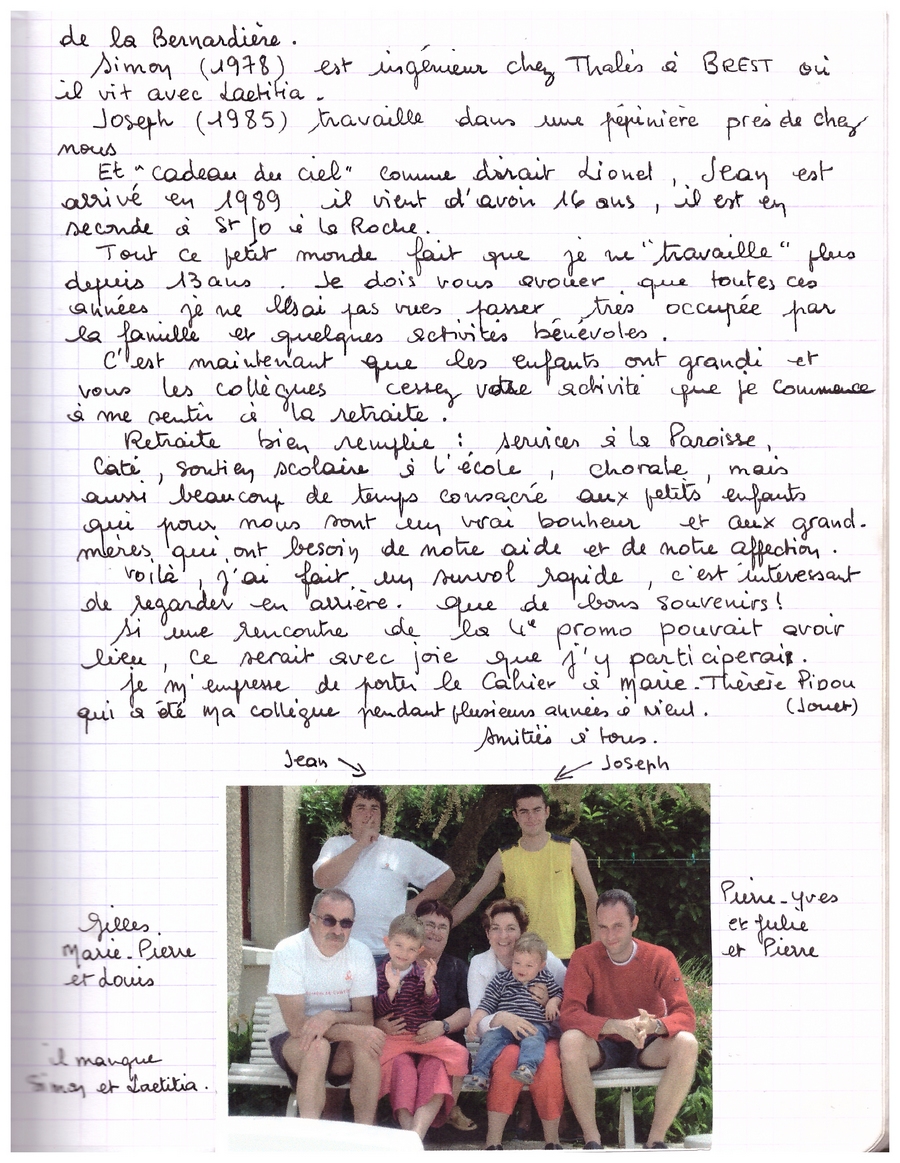 de la Bernardière.
Simon (1978) est ingénieur chez Thalès à BREST où
il vit avec Laetitia.
Joseph (1985) travaille dans une pépinière près de chez
nous
Et "cadeau du ciel" comme dirait Lionel, Jean est
arrivé en 1989 il vient d'avoir 16 ans, il est en
seconde à St Jo à la Roche.
Tout ce petit monde fait que je ne "travaille" plus
depuis 13 ans. Je dois vous avouer que toutes ces
années je ne les ai pas vues passer, très occupée par
la famille et quelques activités bénévoles.
C'est maintenant que les enfants ont grandi et
vous les collègues cessez votre activité que je commence
à me sentir à la retraite.
Retraite bien remplie : services à la Paroisse,
Caté, soutien scolaire à l'école, chorale, mais
aussi beaucoup de temps consacré aux petits enfants
qui pour nous sont un vrai bonheur et aux grand-
mères qui ont besoin de notre aide et de notre affection.
Voilà, j'ai fait un survol rapide, c'est intéressant
de regarder en arrière. Que de bons souvenirs!
Si une rencontre de la 4e promo pouvait avoir
lieu, ce serait avec joie que j'y participerai.
Je m'empresse de porter le Cahier à Marie-Thérèse Pidou
qui a été ma collègue pendant plusieurs années à Nieul. (Jouet)
Amitiés à tous.
Jean Joseph
Gilles.
Marie-Pierre
et Louis
Pierre-Yves
et Julie
et Pierre
il manque
Simon et Laetitia.